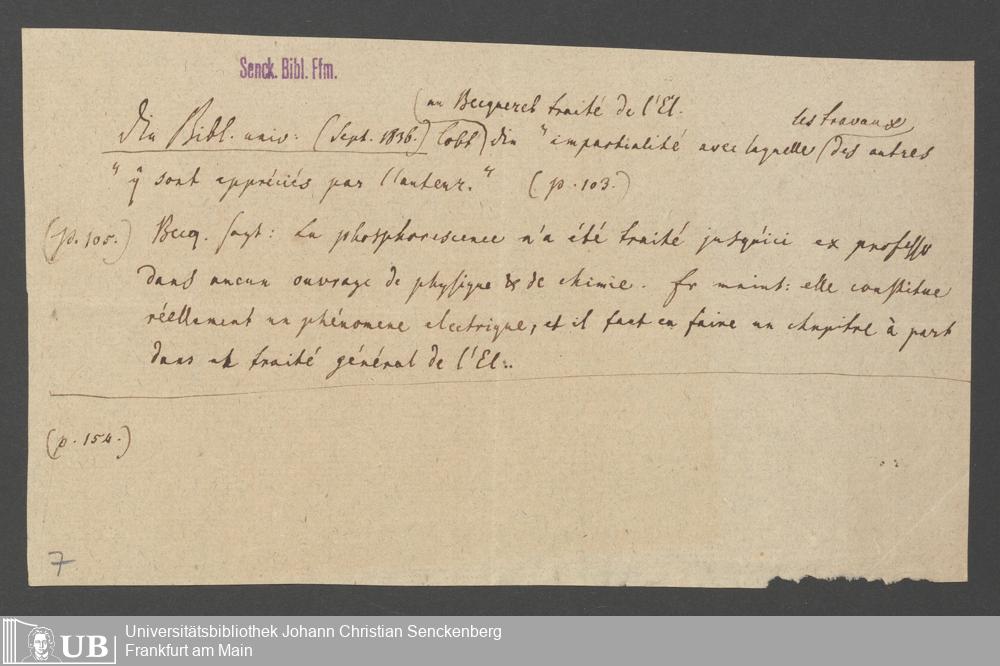 Senck. Bibl. Ffm.
(an Becquerels traité de l'El.
les travaux
Die Bibl. univ: (Sept. 1836.) lobt) die "impartialité avec laquelle (des autres
" y sont appréciés par l'auteur." (p. 103.)
(p. 105.) Becq. sagt: La phosphorescence n'a été traité jusqu'ici ex professo
dans aucun ouvrage de physique & de chimie. Er meint: elle constitue
réellement un phénomene electrique, et il faut en faire un chapitre à part
dans un traité général de l'El:.
(p. 154.)
7
UB
Universitätsbibliothek Johann Christian Senckenberg
Frankfurt am Main